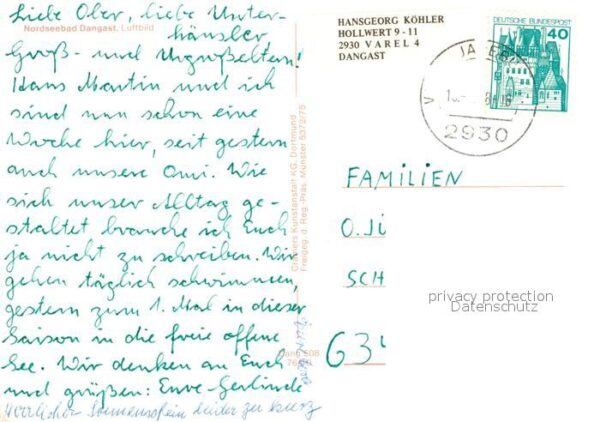 Liebe Ober, liebe Unter-
häusler
Nordseebad Dangast, Luftbild
Groß- und Urgroßeltern!
Hans Martin und ich
sind nun schon eine
Woche hier, seit gestern
auch unsere Omi. Wie
sich unser Alltag ge-
staltet brauche ich Euch
ja nicht zu schreiben. Wir
gehen täglich schwimmen,
gestern zum 1. Mal in dieser
Saison in die freie offene
See. Wir denken an Euch
und grüßen: Eure Gerlinde
Herrlicher Sonnenschein leider zu kurz
Cramers Kunstanstalt KG, Dortmund
Freigeg. d. Reg.-Präs. Münster 5372/75
HANSGEORG KÖHLER
HOLLWERT 9 - 11
2930 VAREL 4
DANGAST
DEUTSCHE BUNDESPOST
40
2930
FAMILIEN
O.
SCH
privacy protection
Datenschutz